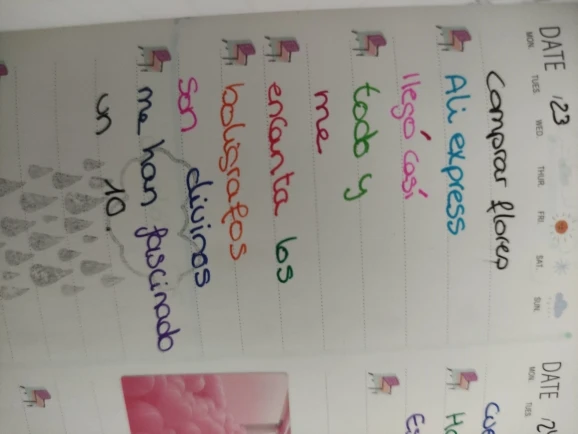 DATE 123
MON. TUES. WED. THUR. FRI. SAT. SUN.
Comprar flores
Ali express
llegó casí
todo y
me
encanta los
boligrafos
son divinos
me han fascinado
un 10.
DATE
MON. TUES.